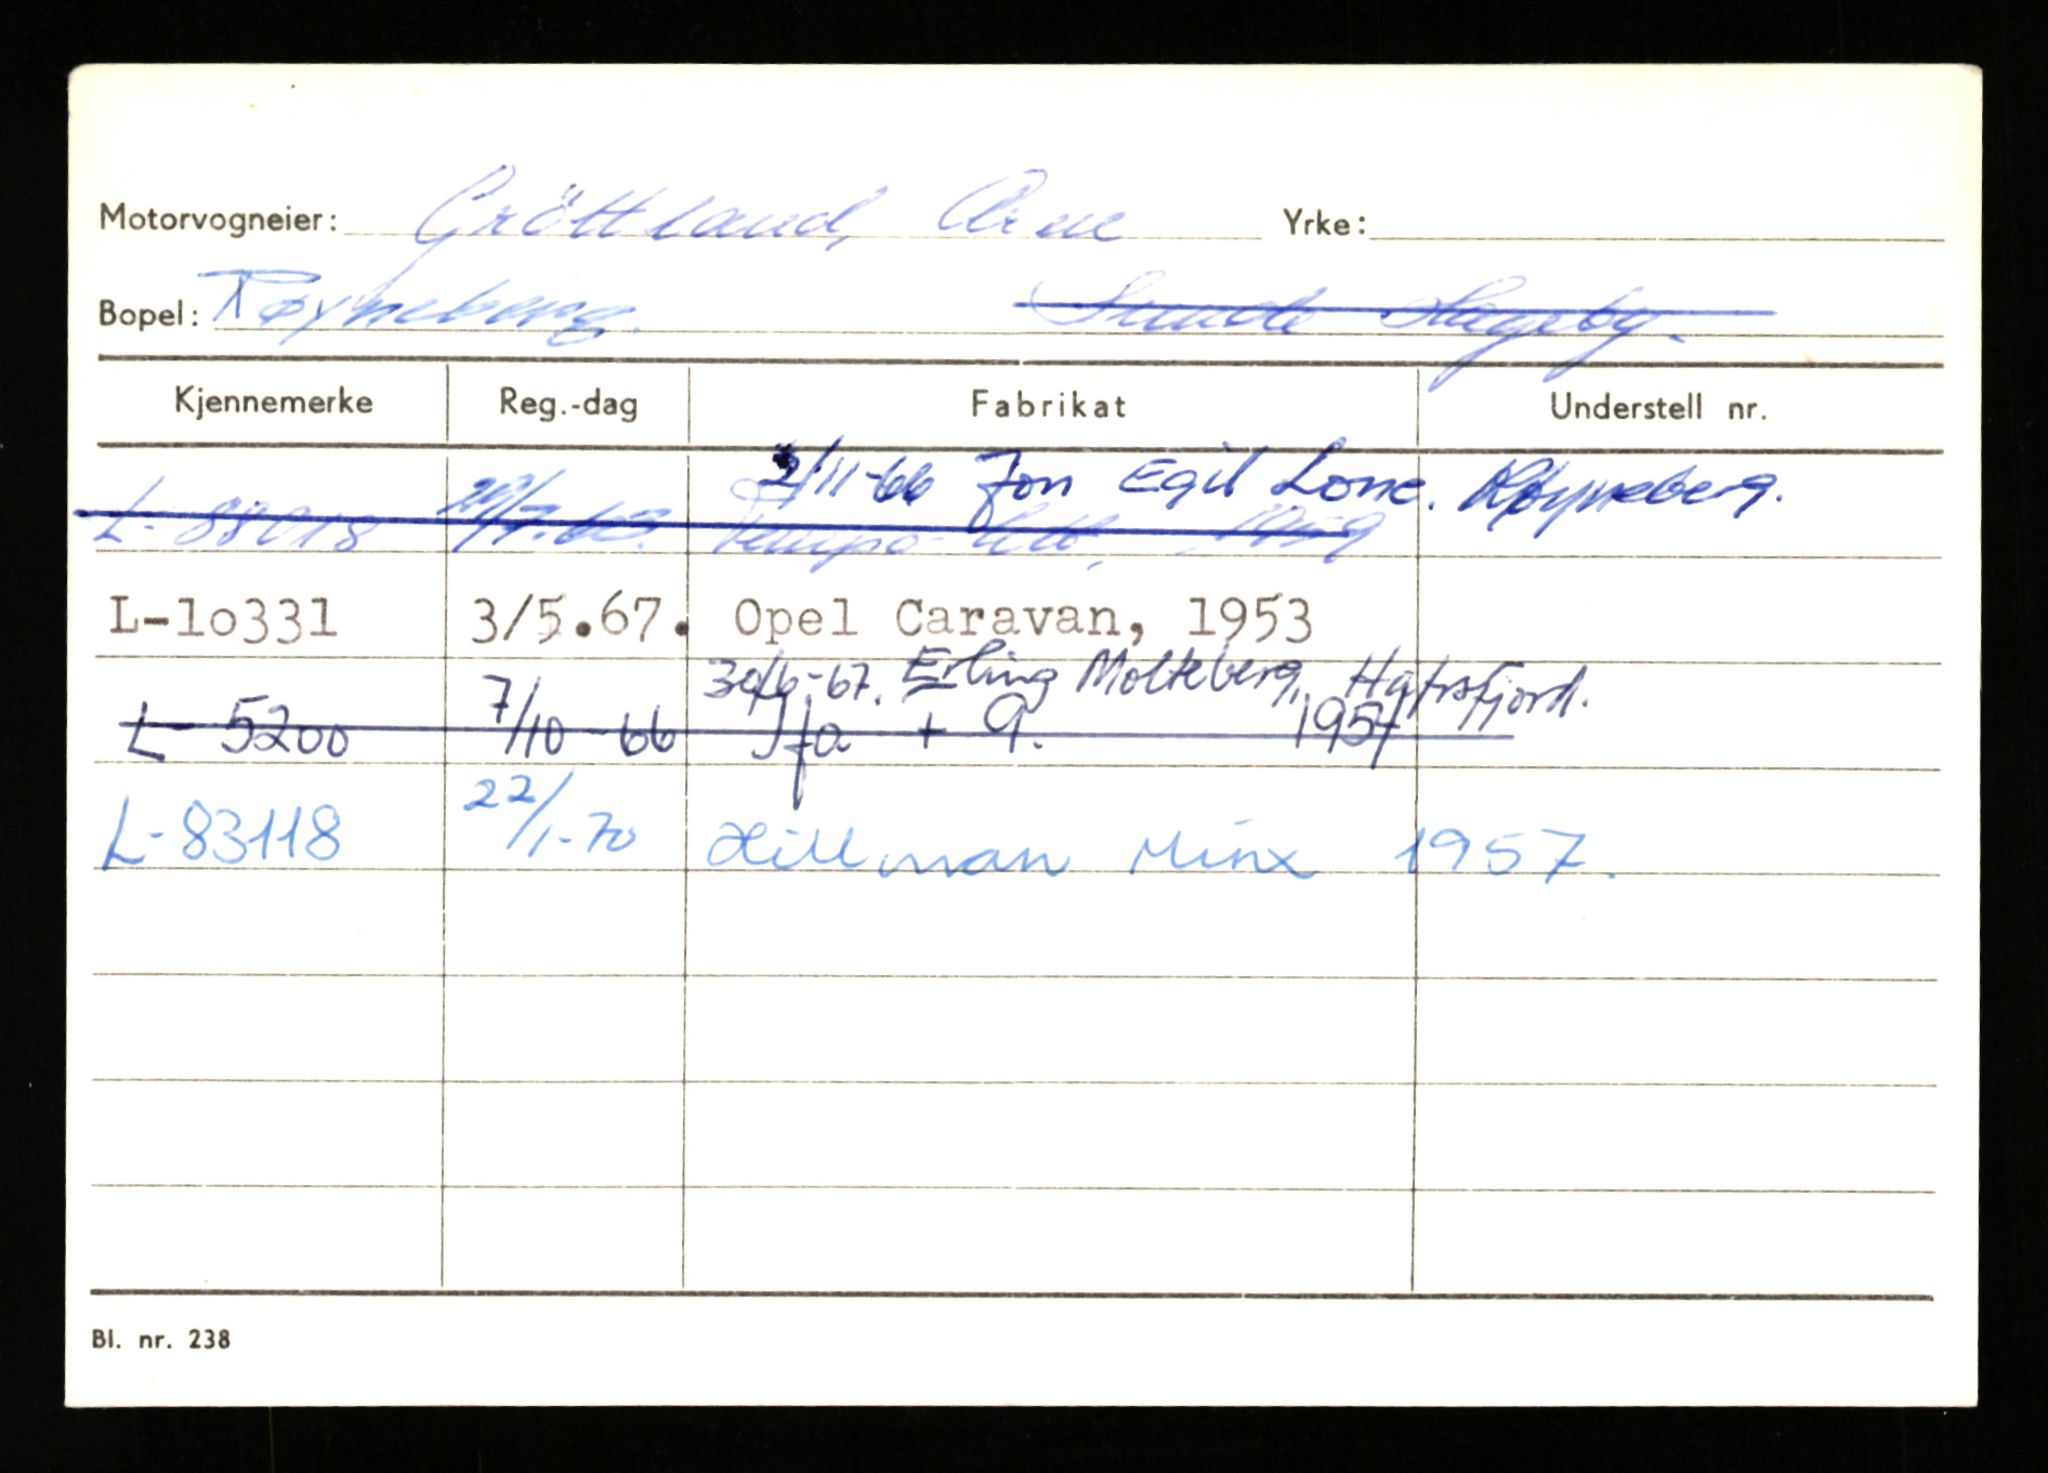 Motorvogneier: Gröttland, Arne Yrke:
Bopel: Røyneberg. Sunde Hageby.
Kjennemerke Reg.-dag Fabrikat Understell nr.
2/11-66 Jon Egil Lone. Røyneberg.
L- 88018 Tempo 1959
L-10331 3/5.67. Opel Caravan, 1953
30/6-67. Erling Molteberg, Hafrsfjord.
L- 5200 7/10-66 Ifa + 9. 1957
L-83118 22/1-70 Hillman Minx 1957.
Bl. nr. 238